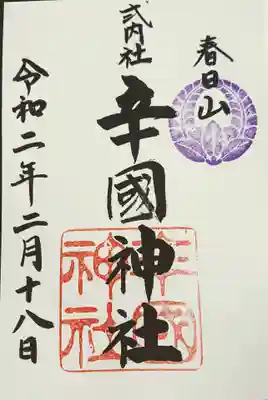 春日山
式内社
辛國神社
辛国
神社
令和二年二月十八日